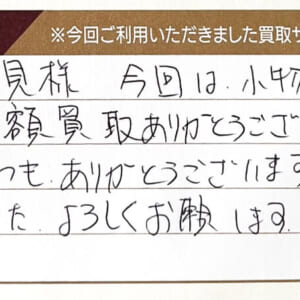 ※今回ご利用いただきました買取サ
貝様 今回は、小物
額買取ありがとうござ
つも、ありがとうございます
た、よろしくお願します。